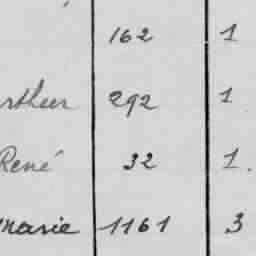 162 1
rthur 292 1
René 32 1.
Marie 1161 3